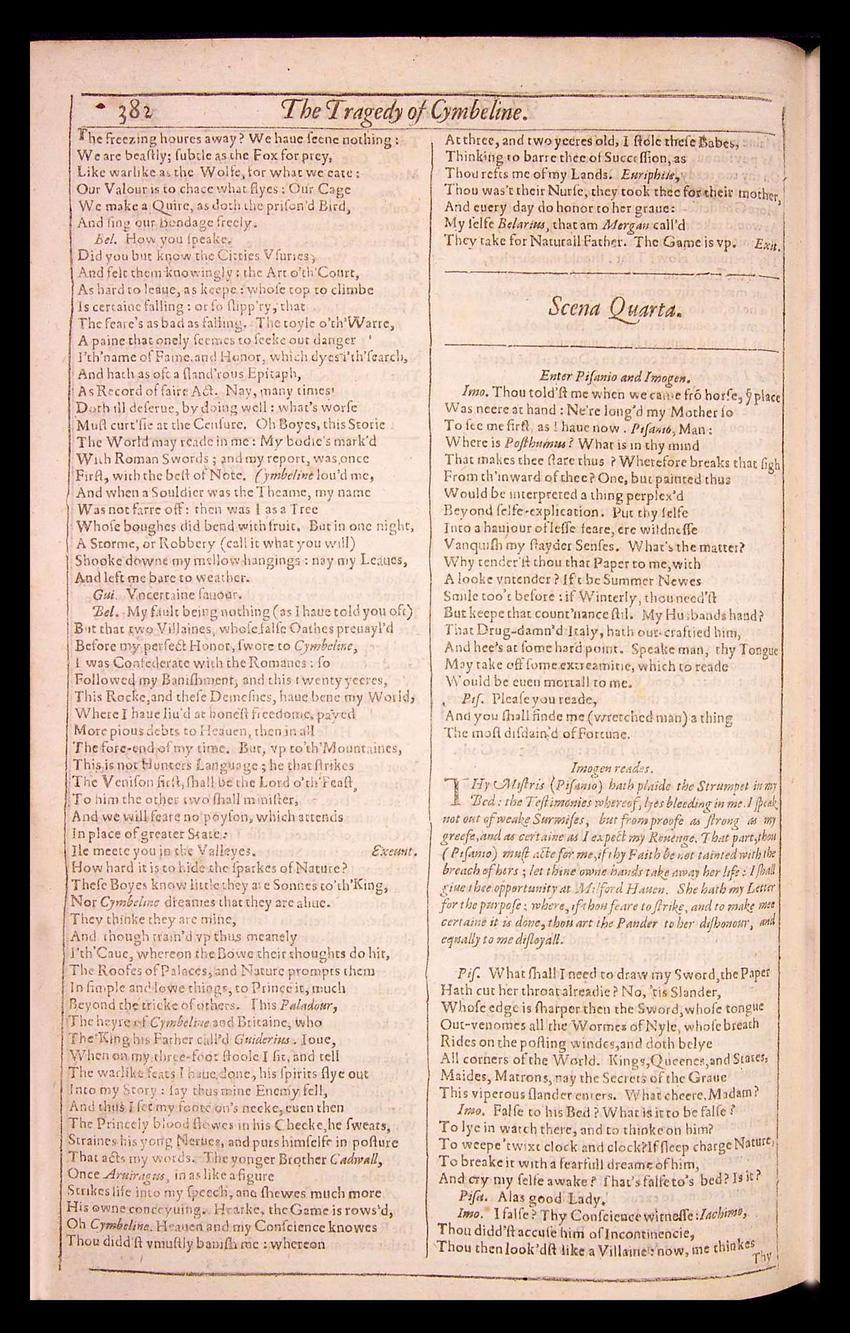 382
The Tragedy of Cymbeline.
The freezing houres away? We haue seene nothing:
We are beastly; subtle as the Fox for prey,
Like warlike as the Wolfe, for what we eate:
Our Valour is to chace what flyes: Our Cage
We make a Quire, as doth the prison'd Bird,
And sing our Bondage freely.
Bel. How you speake.
Did you but know the Citties Vsuries,
And felt them knowingly: the Art o'th'Court,
As hard to leaue, as keepe: whose top to climbe
Is certaine falling: or so slipp'ry, that
The feare's as bad as falling. The toyle o'th'Warre,
A paine that onely seemes to seeke out danger
I'th'name of Fame, and Honor, which dyes i'th'search,
And hath as oft a sland'rous Epitaph,
As Record of faire Act. Nay, many times
Doth ill deserue, by doing well: what's worse
Must curt'sie at the Censure. Oh Boyes, this Storie
The World may reade in me: My bodie's mark'd
With Roman Swords; and my report, was once
First, with the best of Note. Cymbeline lou'd me,
And when a Souldier was the Theame, my name
Was not farre off: then was I as a Tree
Whose boughes did bend with fruit. But in one night,
A Storme, or Robbery (call it what you will)
Shooke downe my mellow hangings: nay my Leaues,
And left me bare to weather.
Gui. Vncertaine fauour.
Bel. My fault being nothing (as I haue told you oft)
But that two Villaines, whose false Oathes preuayl'd
Before my perfect Honor, swore to Cymbeline,
I was Confederate with the Romanes: so
Followed my Banishment, and this twenty yeeres,
This Rocke, and these Demesnes, haue bene my World,
Where I haue liu'd at honest freedome, payed
More pious debts to Heauen, then in all
The fore-end of my time. But, vp to'th'Mountaines,
This is not Hunters Language; he that strikes
The Venison first, shall be the Lord o'th'Feast,
To him the other two shall minister,
And we will feare no poyson, which attends
In place of greater State:
Ile meete you in the Valleyes. Exeunt.
How hard it is to hide the sparkes of Nature?
These Boyes know little they are Sonnes to'th'King,
Nor Cymbeline dreames that they are aliue.
They thinke they are mine,
And though train'd vp thus meanely
I'th'Caue, whereon the Bowe their thoughts do hit,
The Roofes of Palaces, and Nature prompts them
In simple and lowe things, to Prince it, much
Beyond the tricke of others. This Paladour,
The heyre of Cymbeline and Britaine, who
The King his Father call'd Guiderius. Ioue,
When on my three-foot stoole I sit, and tell
The warlike feats I haue done, his spirits flye out
Into my Story: say thus mine Enemy fell,
And thus I set my foote on's necke, euen then
The Princely blood flowes in his Cheeke, he sweats,
Straines his yong Nerues, and puts himselfe in posture
That acts my words. The yonger Brother Cadwall,
Once Aruiragus, in as like a figure
Strikes life into my speech, and shewes much more
His owne conceyuing. Hearke, the Game is rows'd,
Oh Cymbeline, Heauen and my Conscience knowes
Thou didd'st vniustly banish me: whereon
At three, and two yeeres old, I stole these Babes,
Thinking to barre thee of Succession, as
Thou refts me of my Lands. Euriphile,
Thou was't their Nurse, they took thee for their mother,
And euery day do honor to her graue:
My selfe Belarius, that am Mergan call'd
They take for Naturall Father. The Game is vp. Exit.
Scena Quarta.
Enter Pisanio and Imogen.
Imo. Thou told'st me when we came frō horse, ẏ place
Was neere at hand: Ne're long'd my Mother so
To see me first, as I haue now. Pisanio, Man:
Where is Posthumus? What is in thy mind
That makes thee stare thus? Wherefore breaks that sigh
From th'inward of thee? One, but painted thus
Would be interpreted a thing perplex'd
Beyond selfe-explication. Put thy selfe
Into a hauiour of lesse feare, ere wildnesse
Vanquish my stayder Senses. What's the matter?
Why tender'st thou that Paper to me, with
A looke vntender? If't be Summer Newes
Smile too't before: if Winterly, thou need'st
But keepe that count'nance stil. My Husbands hand?
That Drug-damn'd Italy, hath out-craftied him,
And hee's at some hard point. Speake man, thy Tongue
May take off some extreamitie, which to reade
Would be euen mortall to me.
Pis. Please you reade,
And you shall finde me (wretched man) a thing
The most disdain'd of Fortune.
Imogen reades.
THy Mistris (Pisanio) hath plaide the Strumpet in my
Bed: the Testimonies whereof, lyes bleeding in me. I speak
not out of weake Surmises, but from proofe as strong as my
greefe, and as certaine as I expect my Reuenge. That part, thou
(Pisanio) must acte for me, if thy Faith be not tainted with the
breach of hers; let thine owne hands take away her life: I shall
giue thee opportunity at Milford Hauen. She hath my Letter
for the purpose; where, if thou feare to strike, and to make mee
certaine it is done, thou art the Pander to her dishonour, and
equally to me disloyall.
Pis. What shall I need to draw my Sword, the Paper
Hath cut her throat alreadie? No, 'tis Slander,
Whose edge is sharper then the Sword, whose tongue
Out-venomes all the Wormes of Nyle, whose breath
Rides on the posting windes, and doth belye
All corners of the World. Kings, Queenes, and States,
Maides, Matrons, nay the Secrets of the Graue
This viperous slander enters. What cheere, Madam?
Imo. False to his Bed? What is it to be false?
To lye in watch there, and to thinke on him?
To weepe 'twixt clock and clock? If sleep charge Nature,
To breake it with a fearfull dreame of him,
And cry my selfe awake? That's false to's bed? Is it?
Pisa. Alas good Lady.
Imo. I false? Thy Conscience witnesse: Iachimo,
Thou didd'st accuse him of Incontinencie,
Thou then look'dst like a Villaine: now, me thinkes
Thy